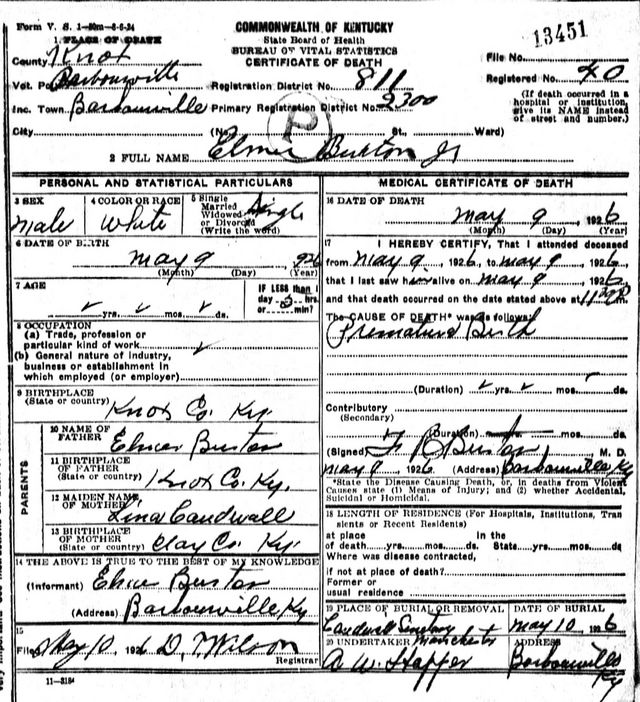 Form V. S. 1-50m-8-6-24
COMMONWEALTH OF KENTUCKY
State Board of Health
BUREAU OF VITAL STATISTICS
CERTIFICATE OF DEATH
13451
1 PLACE OF DEATH
County Knox
File No.
Vot. Barbourville
Registration District No. 811
Registered No. 40
Inc. Town Barbourville Primary Registration District No. 2300
(If death occurred in a hospital or institution, give its NAME instead of street and number.)
City (No. St., Ward)
P
2 FULL NAME Elmer Burton Jr
PERSONAL AND STATISTICAL PARTICULARS
3 SEX
Male
4 COLOR OR RACE
White
5 Single
Married
Widowed
or Divorced
(Write the word)
Single
6 DATE OF BIRTH
May 9 926
(Month) (Day) (Year)
7 AGE
yrs. mos. ds.
IF LESS than 1
day 3 hrs.
or min?
8 OCCUPATION
(a) Trade, profession or
particular kind of work
(b) General nature of industry,
business or establishment in
which employed (or employer)
9 BIRTHPLACE
(State or country)
Knox Co. Ky.
PARENTS
10 NAME OF
FATHER
Elmer Burton
11 BIRTHPLACE
OF FATHER
(State or country)
Knox Co. Ky.
12 MAIDEN NAME
OF MOTHER
Lina Caudwall
13 BIRTHPLACE
OF MOTHER
(State or country)
Clay Co. Ky.
14 THE ABOVE IS TRUE TO THE BEST OF MY KNOWLEDGE
(Informant) Elmer Burton
(Address) Barbourville Ky
15
Filed May 10, 1926 D. Wilson
Registrar
11-3184
MEDICAL CERTIFICATE OF DEATH
16 DATE OF DEATH
May 9, 1926
(Month) (Day) (Year)
17
I HEREBY CERTIFY, That I attended deceased
from May 9, 1926, to May 9, 1926,
that I last saw him alive on May 9, 1926,
and that death occurred on the date stated above at 11:30 P
The CAUSE OF DEATH* was as follows:
Premature Birth
(Duration) yrs. mos. ds.
Contributory
(Secondary)
(Duration) yrs. mos. ds.
(Signed) Burton, M. D.
May 9 1926 (Address) Barbourville Ky
*State the Disease Causing Death, or, in deaths from Violent
Causes state (1) Means of Injury; and (2) whether Accidental,
Suicidal or Homicidal.
18 LENGTH OF RESIDENCE (For Hospitals, Institutions, Tran
sients or Recent Residents)
at place In the
of death yrs. mos. ds. State yrs. mos. ds.
Where was disease contracted,
if not at place of death?
Former or
usual residence
19 PLACE OF BURIAL OR REMOVAL
Caudwell Cemetery
Manchester
DATE OF BURIAL
May 10 1926
20 UNDERTAKER
A W Hopper
ADDRESS
Barbourville
Ky